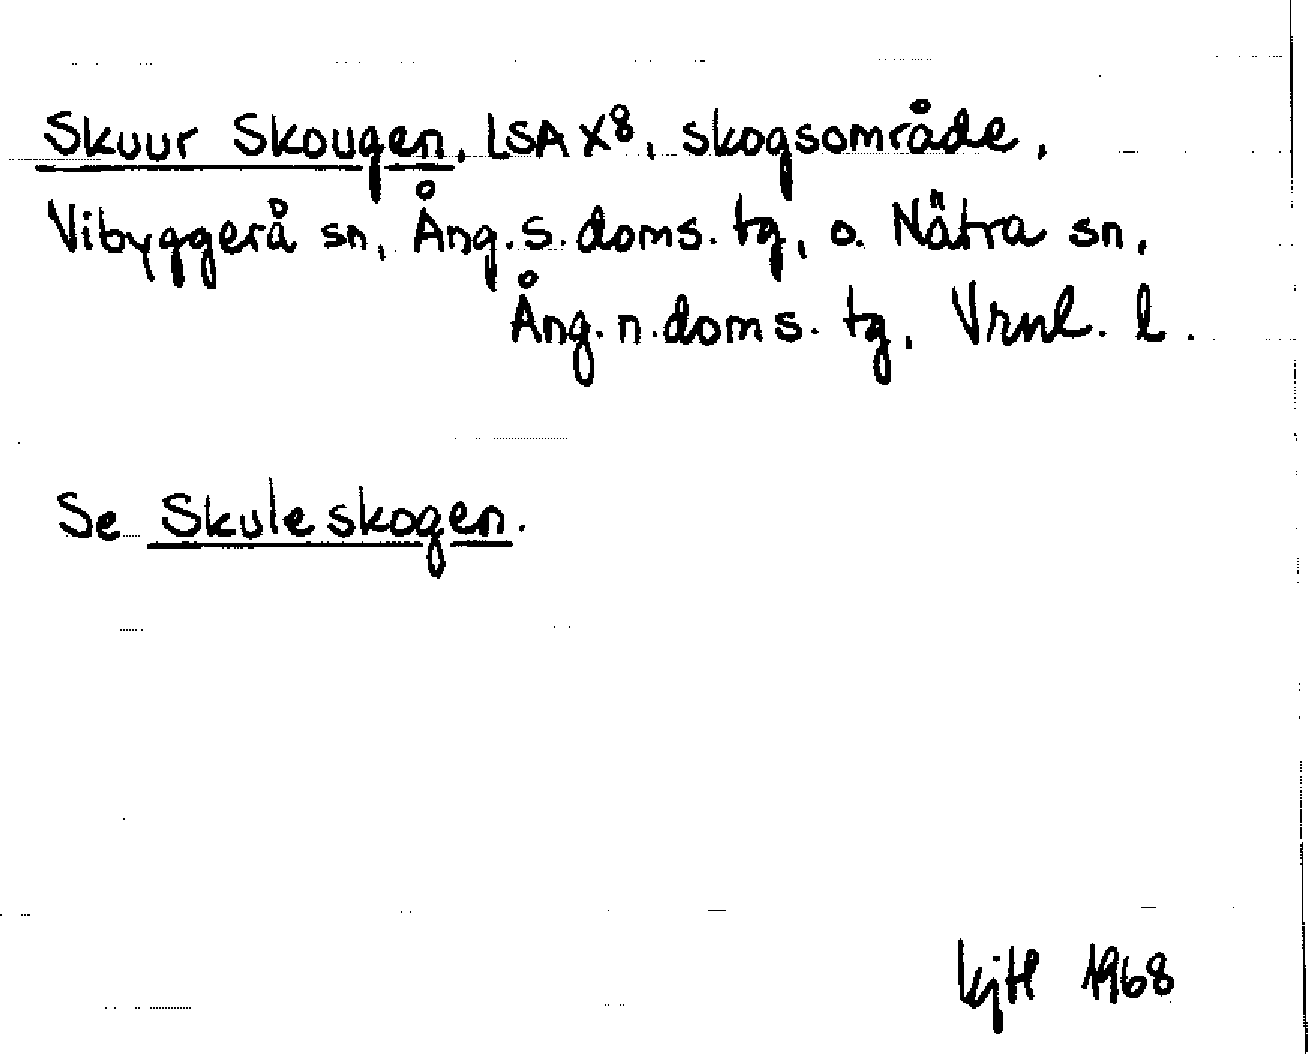 Skuur Skougen, LSA X⁸, skogsområde,
Vibyggerå sn, Ång. s. doms. tg, o. Nätra sn,
Ång. n. doms. tg, Vrnl. l.
Se Skuleskogen.
KjH 1968